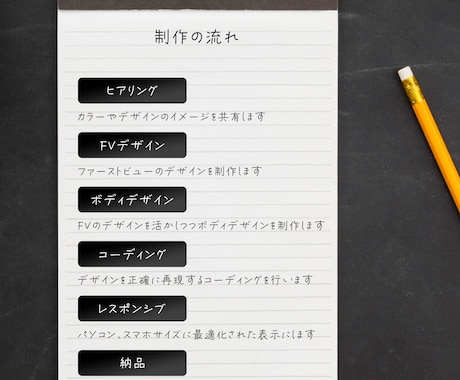 制作の流れ
ヒアリング
カラーやデザインのイメージを共有します
FVデザイン
ファーストビューのデザインを制作します
ボディデザイン
FVのデザインを活かしつつボディデザインを制作します
コーディング
デザインを正確に再現するコーディングを行います
レスポンシブ
パソコン、スマホサイズに最適化された表示にします
納品